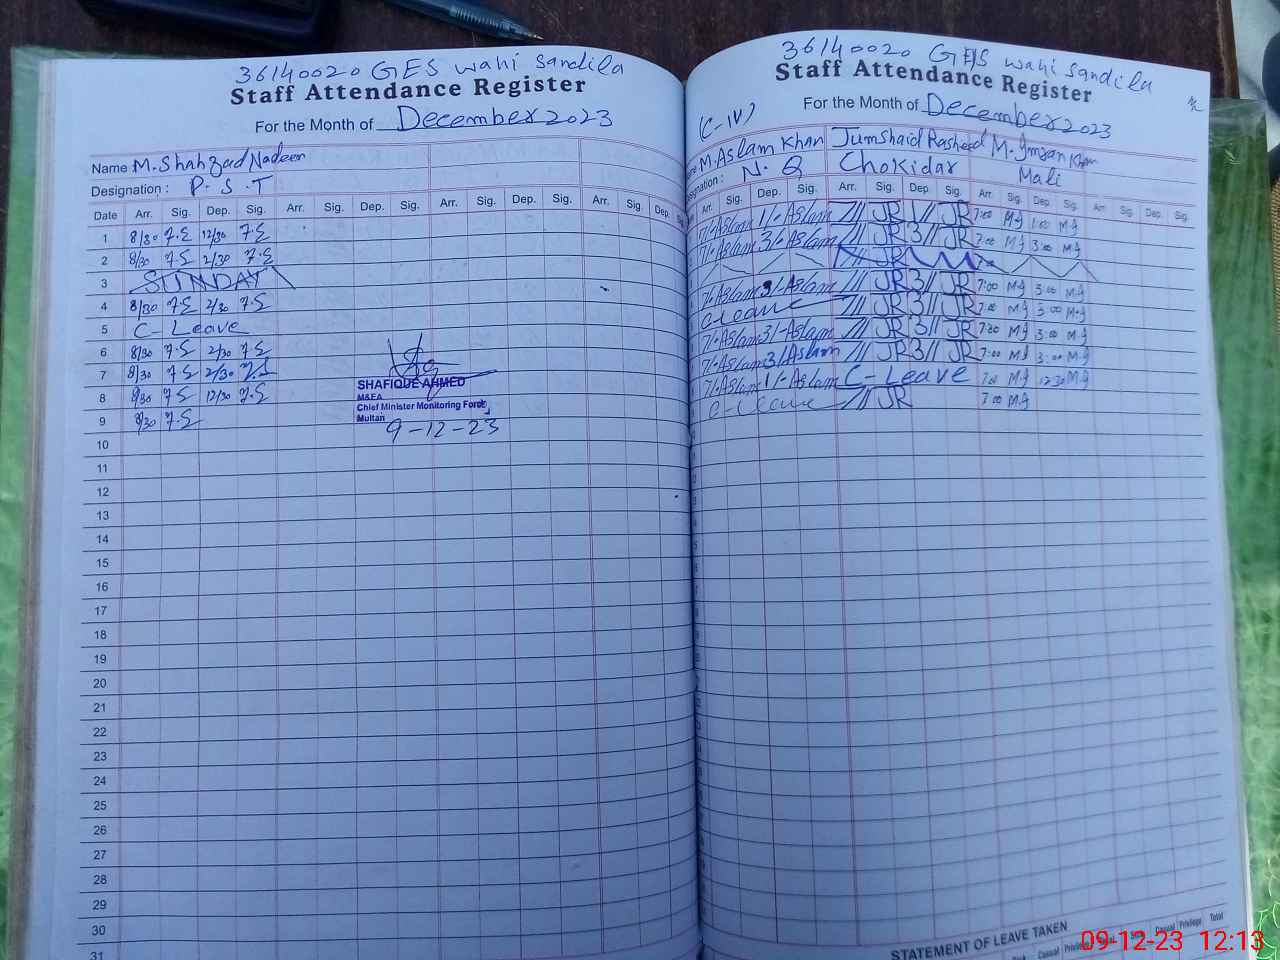 36140020 GES wahi Sandila
Staff Attendance Register
For the Month of December 2023
Name M. Shahzad Nadeem
Designation : P.S.T
Date Arr. Sig. Dep. Sig. Arr. Sig. Dep. Sig. Arr. Sig. Dep. Sig. Arr. Sig. Dep. Sig.
1 8/30 12/30
2 8/30 2/30
3 SUNDAY
4 8/30 2/30
5 C- Leave
6 8/30 2/30
7 8/30 2/30
8 8/30 12/30
9 8/30
10
11
12
13
14
15
16
17
18
19
20
21
22
23
24
25
26
27
28
29
30
31
SHAFIQUE AHMED
M&EA
Chief Minister Monitoring Force
Multan
9-12-23
36140020 GES wahi Sandila
Staff Attendance Register
For the Month of December 2023
(C-IV)
M. Aslam Khan Jumshaid Rasheed M. Imran Khan
N. Q Chokidar Mali
Arr. Sig. Dep. Sig. Arr. Sig. Dep. Sig. Arr. Sig. Dep. Sig. Arr. Sig. Dep. Sig.
7/- Aslam 1/- Aslam /// JR 1// JR 7:00 MJ 1:00 MJ
7/- Aslam 3/- Aslam /// JR 3// JR 7:00 MJ 3:00 MJ
JR 7:00
7/- Aslam 3/- Aslam /// JR 3// JR 7:00 MJ 3:00 MJ
C Leave /// JR 3// JR 7:00 MJ 3:00 MJ
7/- Aslam 3/- Aslam /// JR 3// JR 7:00 MJ 3:00 MJ
7/- Aslam 3/- Aslam /// JR 3// JR 7:00 MJ 3:00 MJ
7/- Aslam 1/- Aslam C- Leave 7:00 MJ 12:30 MJ
C- Leave /// JR 7:00 MJ
STATEMENT OF LEAVE TAKEN
Casual Privilege Total Sick Casual Privilege Total
09-12-23 12:13